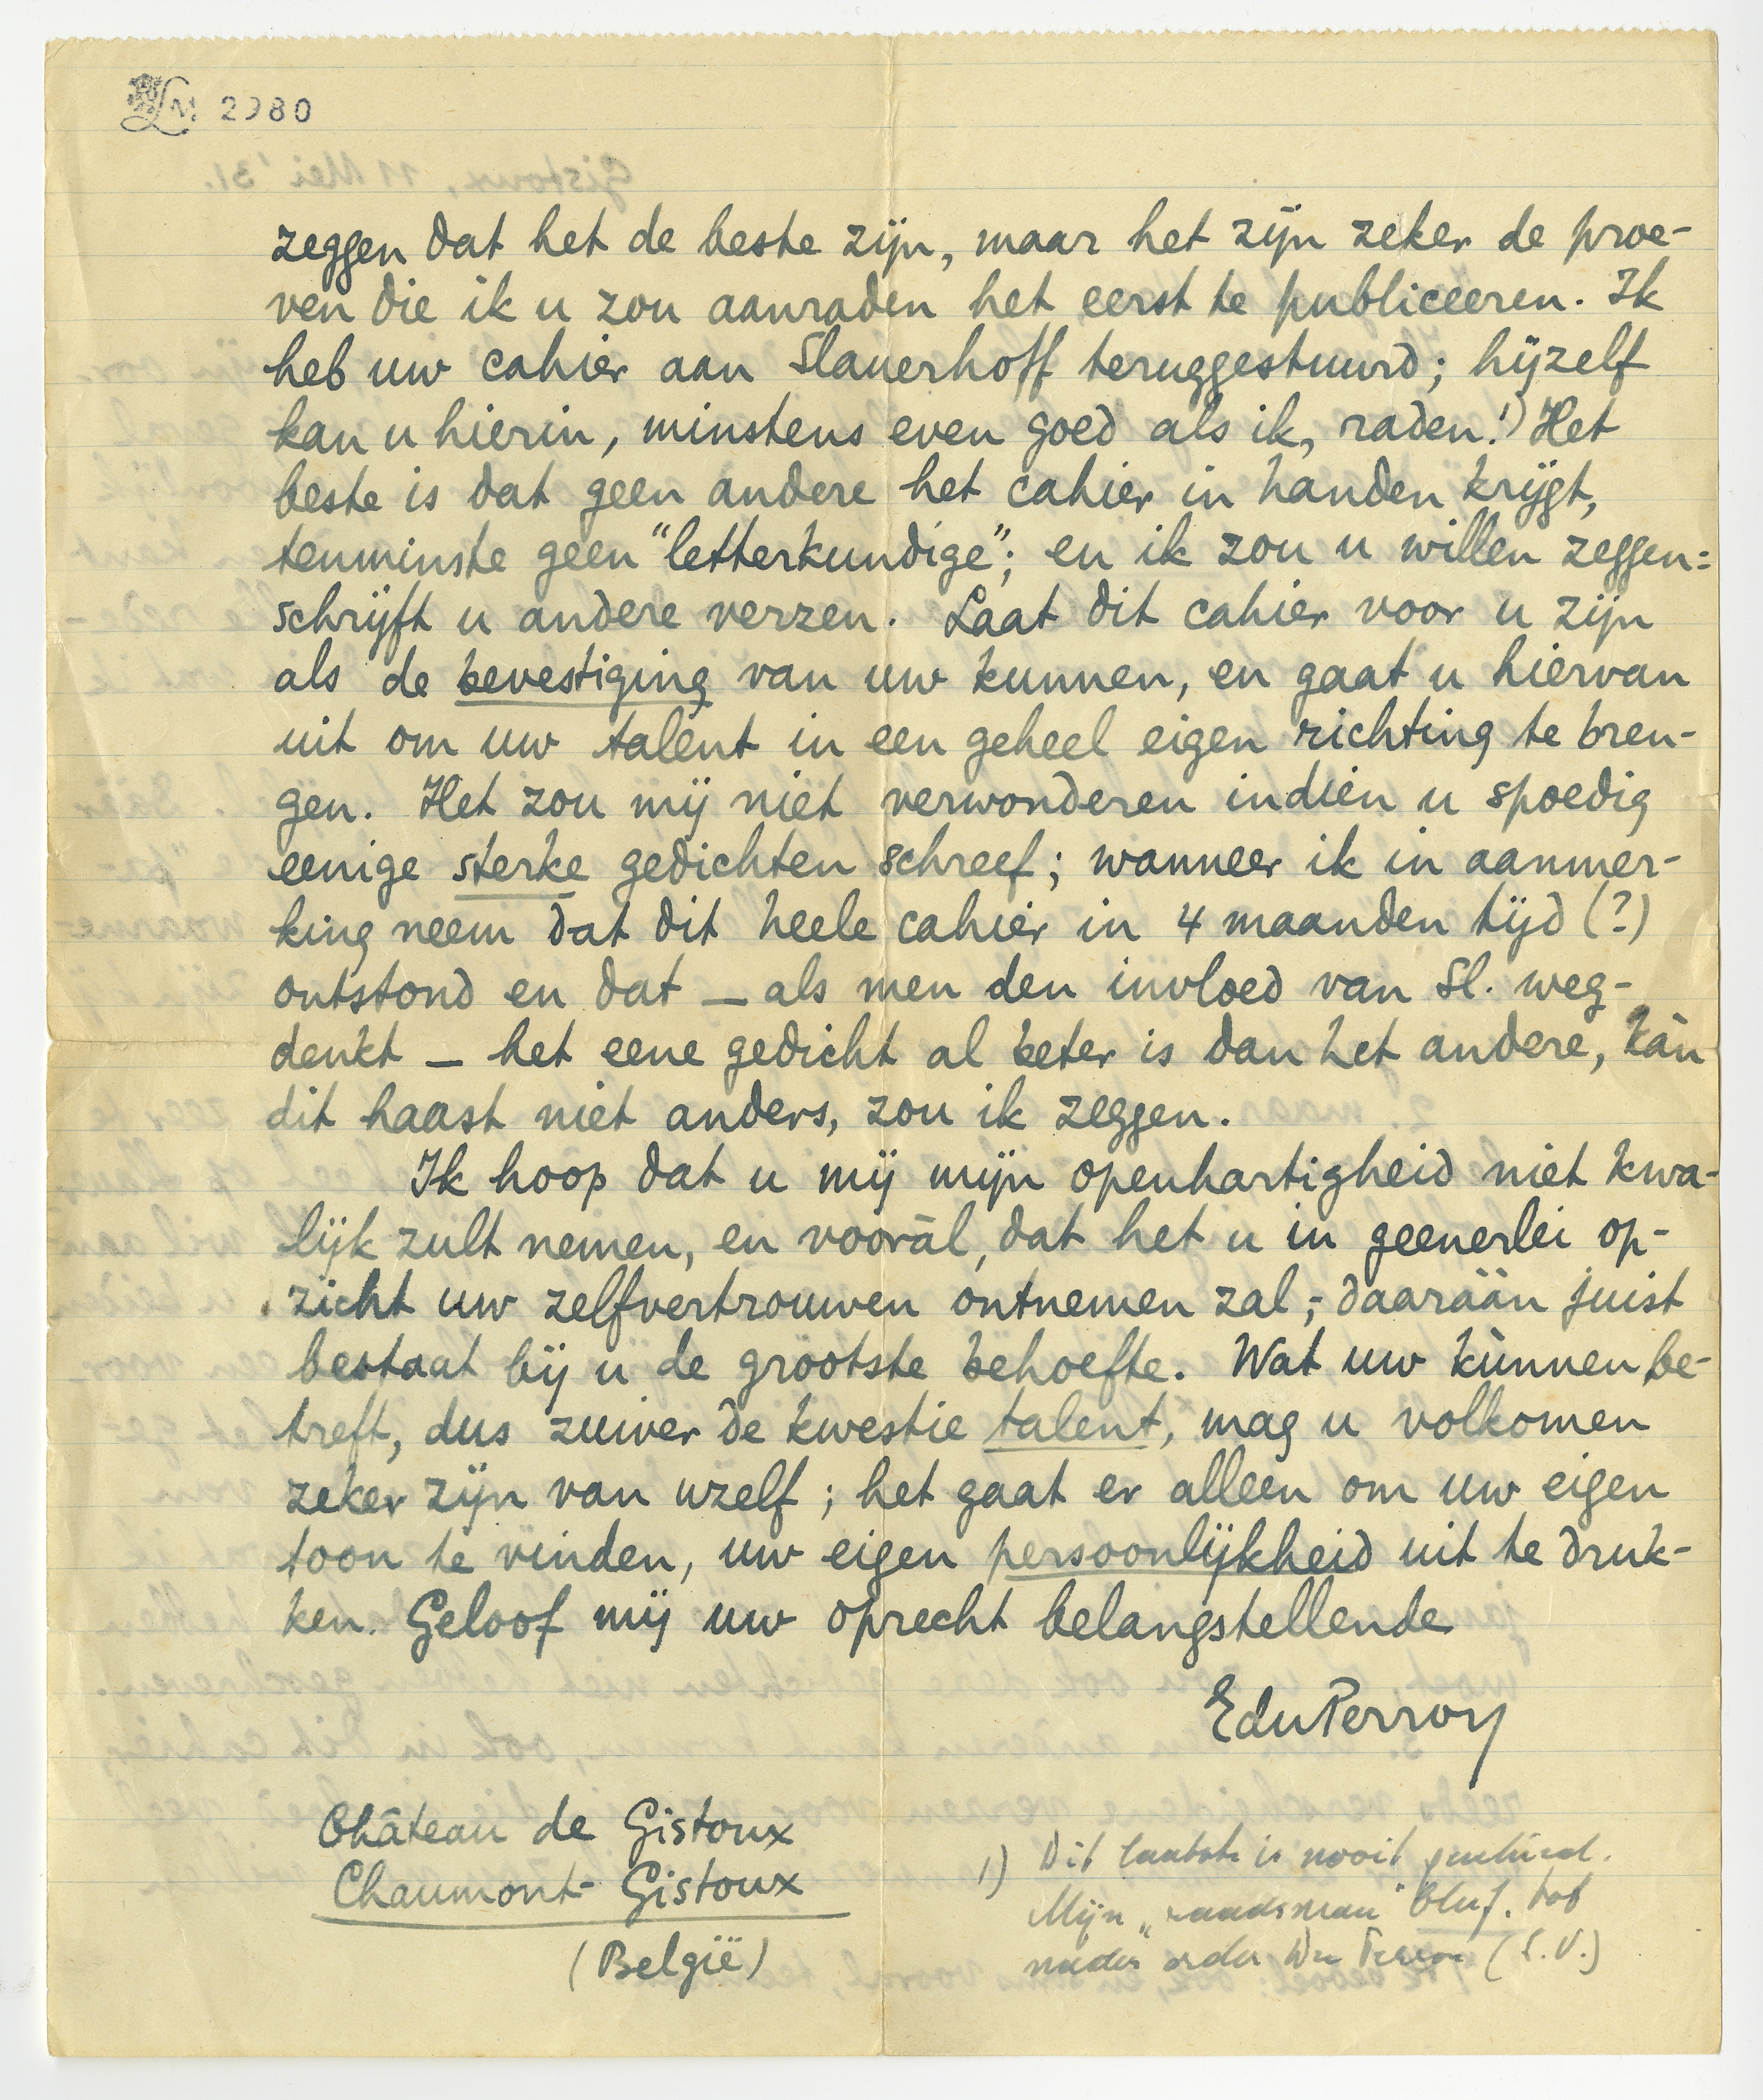 LM 2980
zeggen dat het de beste zijn, maar het zijn zeker de proe-
ven die ik u zou aanraden het eerst te publiceeren. Ik
heb uw cahier aan Slauerhoff teruggestuurd; hijzelf
kan u hierin, minstens even goed als ik, raden.¹) Het
beste is dat geen andere het cahier in handen krijgt,
tenminste geen "letterkundige"; en ik zou u willen zeggen:
schrijft u andere verzen. Laat dit cahier voor u zijn
als de bevestiging van uw kunnen, en gaat u hiervan
uit om uw talent in een geheel eigen richting te bren-
gen. Het zou mij niet verwonderen indien u spoedig
eenige sterke gedichten schreef; wanneer ik in aanmer-
king neem dat dit heele cahier in 4 maanden tijd (?)
ontstond en dat — als men den invloed van Sl. weg-
denkt — het eene gedicht al beter is dan het andere, kàn
dit haast niet anders, zou ik zeggen.
Ik hoop dat u mij mijn openhartigheid niet kwa-
lijk zult nemen, en vooràl, dat het u in geenerlei op-
zicht uw zelfvertrouwen ontnemen zal; - daaráán juist
bestaat bij u de grootste behoefte. Wat uw kùnnen be-
treft, dus zuiver de kwestie talent, mag u volkomen
zeker zijn van uzelf; het gaat er alleen om uw eigen
toon te vinden, uw eigen persoonlijkheid uit te druk-
ken. Geloof mij uw oprecht belangstellende
EduPerron
Château de Gistoux
Chaumont-Gistoux
(België)
1) Dit laatste is nooit gebeurd.
Mijn "raadsman"